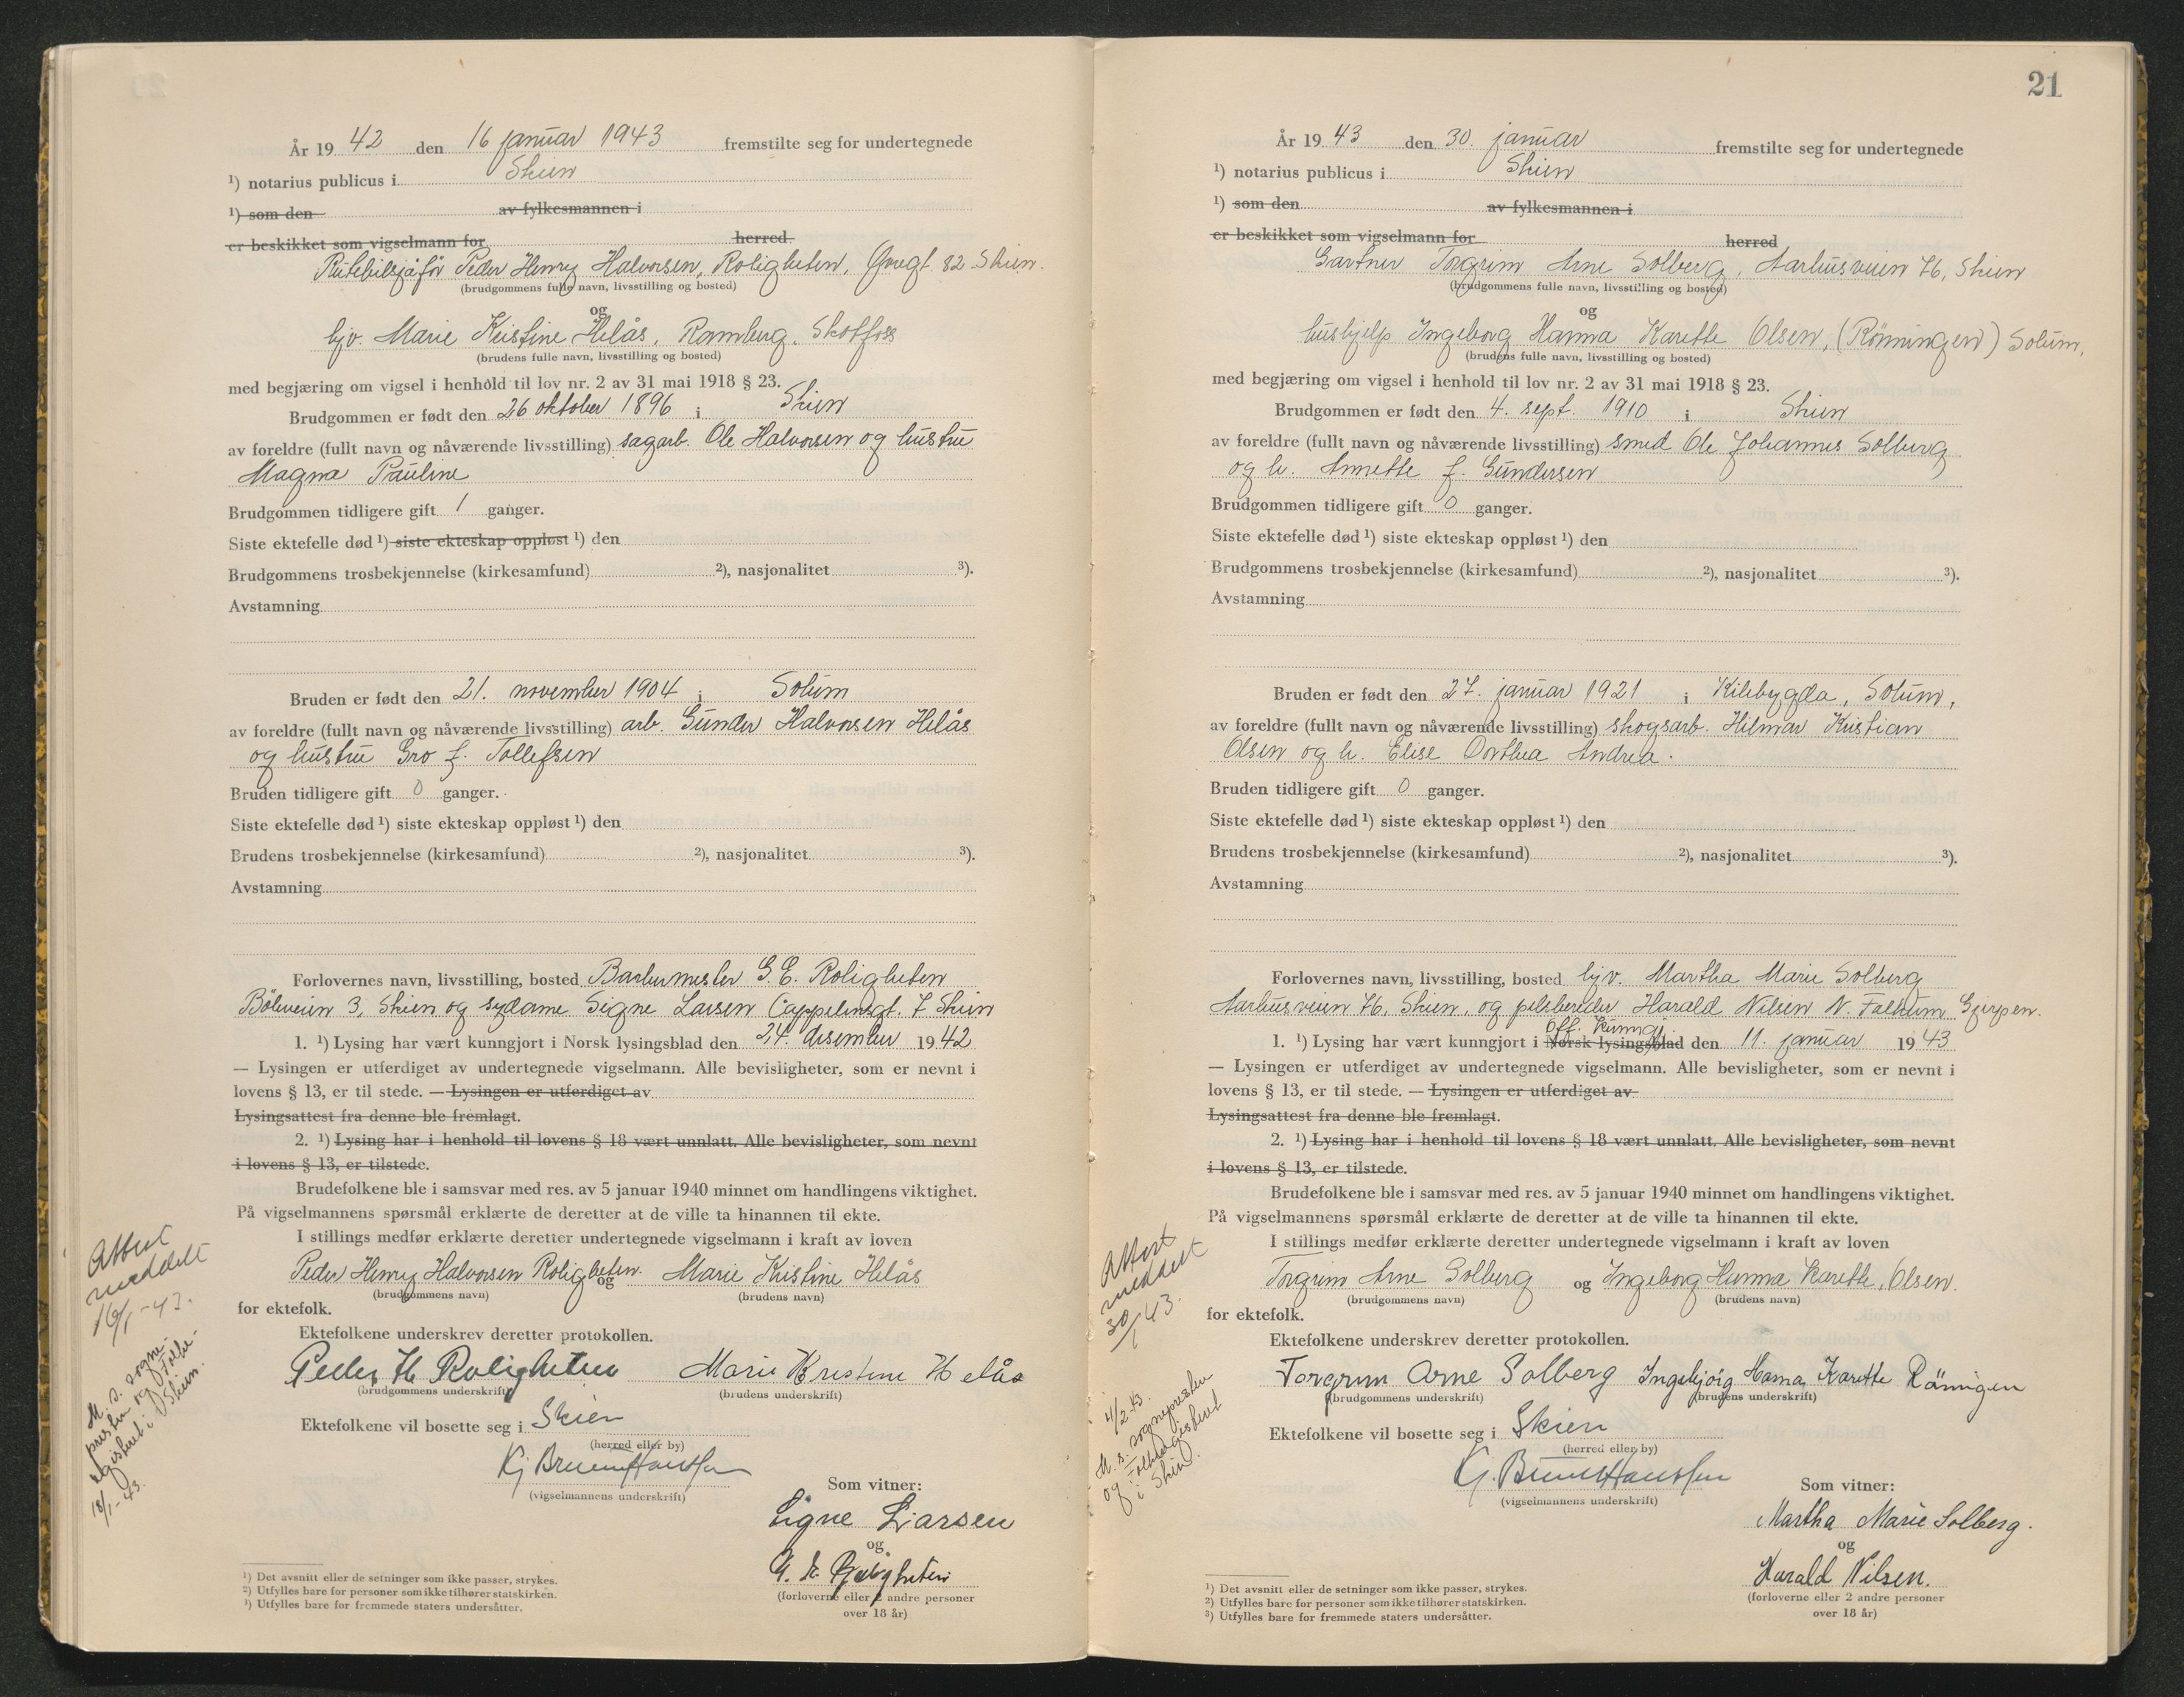 År 19 42 den 16 januar 1943 fremstilte seg for undertegnede
¹) notarius publicus i Skien
¹) som den av fylkesmannen i
er beskikket som vigselmann for herred
Rutebilsjåför Peder Henry Halvorsen, Roligheten, Gvegt. 82 Skien.
(brudgommens fulle navn, livsstilling og bosted)
og
hjv. Marie Kristine Helås, Ramberg, Skotfoss
(brudens fulle navn, livsstilling og bosted)
med begjæring om vigsel i henhold til lov nr. 2 av 31 mai 1918 § 23.
Brudgommen er født den 26 oktober 1896 i Skien
av foreldre (fullt navn og nåværende livsstilling) sagarb. Ole Halvorsen og hustru
Magna Pauline
Brudgommen tidligere gift 1 ganger.
Siste ektefelle død ¹) siste ekteskap oppløst ¹) den
Brudgommens trosbekjennelse (kirkesamfund) ²), nasjonalitet ³).
Avstamning
Bruden er født den 21. november 1904 i Solum
av foreldre (fullt navn og nåværende livsstilling) arb. Gunder Halvorsen Helås
og hustru Gro f. Tollefsen
Bruden tidligere gift 0 ganger.
Siste ektefelle død ¹) siste ekteskap oppløst ¹) den
Brudens trosbekjennelse (kirkesamfund) ²), nasjonalitet ³).
Avstamning
Forlovernes navn, livsstilling, bosted Barbermester G. E. Roligheten
Böleveien 3, Skien og sydame Signe Larsen Cappelensgt. 7 Skien
1. ¹) Lysing har vært kunngjort i Norsk lysingsblad den 24. desember 19 42
— Lysingen er utferdiget av undertegnede vigselmann. Alle bevisligheter, som er nevnt i
lovens § 13, er til stede. — Lysingen er utferdiget av
Lysingsattest fra denne ble fremlagt.
2. ¹) Lysing har i henhold til lovens § 18 vært unnlatt. Alle bevisligheter, som nevnt
i lovens § 13, er tilstede.
Brudefolkene ble i samsvar med res. av 5 januar 1940 minnet om handlingens viktighet.
På vigselmannens spørsmål erklærte de deretter at de ville ta hinannen til ekte.
I stillings medfør erklærte deretter undertegnede vigselmann i kraft av loven
Peder Henry Halvorsen Roligheten. og Marie Kristine Helås
(brudgommens navn) (brudens navn)
for ektefolk.
Ektefolkene underskrev deretter protokollen.
Peder H Roligheten Marie Kristine Helås
(brudgommens underskrift) (brudens underskrift)
Ektefolkene vil bosette seg i Skien
(herred eller by)
Kj Bruun Hanssen
(vigselmannens underskrift)
Som vitner:
Signe Larsen
og
G. E. Roligheten
(forloverne eller 2 andre personer
over 18 år)
¹) Det avsnitt eller de setninger som ikke passer, strykes.
²) Utfylles bare for personer som ikke tilhører statskirken.
³) Utfylles bare for fremmede staters undersåtter.
Attest
meddelt
16/1-43.
M. s. sogne-
presten og Folke-
registeret i Skien.
18/1-43.
21
År 19 43 den 30. januar fremstilte seg for undertegnede
¹) notarius publicus i Skien
¹) som den av fylkesmannen i
er beskikket som vigselmann for herred
Gartner Torgrim Arne Solberg, Aarhusveien 76, Skien
(brudgommens fulle navn, livsstilling og bosted)
og
hushjelp Ingeborg Hanna Karethe Olsen, (Rönningen) Solum,
(brudens fulle navn, livsstilling og bosted)
med begjæring om vigsel i henhold til lov nr. 2 av 31 mai 1918 § 23.
Brudgommen er født den 4. sept. 1910 i Skien
av foreldre (fullt navn og nåværende livsstilling) smed Ole Johannes Solberg
og h. Annette f. Gundersen
Brudgommen tidligere gift 0 ganger.
Siste ektefelle død ¹) siste ekteskap oppløst ¹) den
Brudgommens trosbekjennelse (kirkesamfund) ²), nasjonalitet ³).
Avstamning
Bruden er født den 27. januar 1921 i Kilebygda, Solum,
av foreldre (fullt navn og nåværende livsstilling) skogsarb. Hilmar Kristian
Olsen og h. Elise Dorthea Andrea.
Bruden tidligere gift 0 ganger.
Siste ektefelle død ¹) siste ekteskap oppløst ¹) den
Brudens trosbekjennelse (kirkesamfund) ²), nasjonalitet ³).
Avstamning
Forlovernes navn, livsstilling, bosted hjv. Martha Marie Solberg
Aarhusveien 76, Skien, og pelsbereder Harald Nilsen N. Falkum Gjerpen.
off. kunngj.
1. ¹) Lysing har vært kunngjort i Norsk lysingsblad den 11. januar 19 43
— Lysingen er utferdiget av undertegnede vigselmann. Alle bevisligheter, som er nevnt i
lovens § 13, er til stede. — Lysingen er utferdiget av
Lysingsattest fra denne ble fremlagt.
2. ¹) Lysing har i henhold til lovens § 18 vært unnlatt. Alle bevisligheter, som nevnt
i lovens § 13, er tilstede.
Brudefolkene ble i samsvar med res. av 5 januar 1940 minnet om handlingens viktighet.
På vigselmannens spørsmål erklærte de deretter at de ville ta hinannen til ekte.
I stillings medfør erklærte deretter undertegnede vigselmann i kraft av loven
Torgrim Arne Solberg og Ingeborg Hanna Karethe, Olsen.
(brudgommens navn) (brudens navn)
for ektefolk.
Ektefolkene underskrev deretter protokollen.
Torgrim Arne Solberg Ingebjörg Hanna Karethe Rönnigen
(brudgommens underskrift) (brudens underskrift)
Ektefolkene vil bosette seg i Skien
(herred eller by)
Kj. Bruun Hanssen
(vigselmannens underskrift)
Som vitner:
Martha Marie Solberg.
og
Harald Nilsen.
(forloverne eller 2 andre personer
over 18 år)
¹) Det avsnitt eller de setninger som ikke passer, strykes.
²) Utfylles bare for personer som ikke tilhører statskirken.
³) Utfylles bare for fremmede staters undersåtter.
Attest
meddelt
30/1 43.
4/2-43.
M. s. sognepresten
og Folkeregisteret
i Skien.